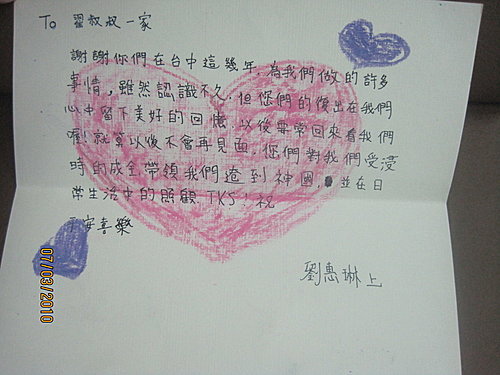 To 翟叔叔一家
謝謝你們在台中這幾年,為我們做的許多
事情,雖然認識不久,但您們的付出在我們
心中留下美好的回憶,以後要常回來看我們
喔!就算以後不會再見面,您們對我們受浸
時的成全,帶領我們遷到神國,並在日
常生活中的照顧,TKS!祝
平安喜樂
劉惠琳 上
07/03/2010